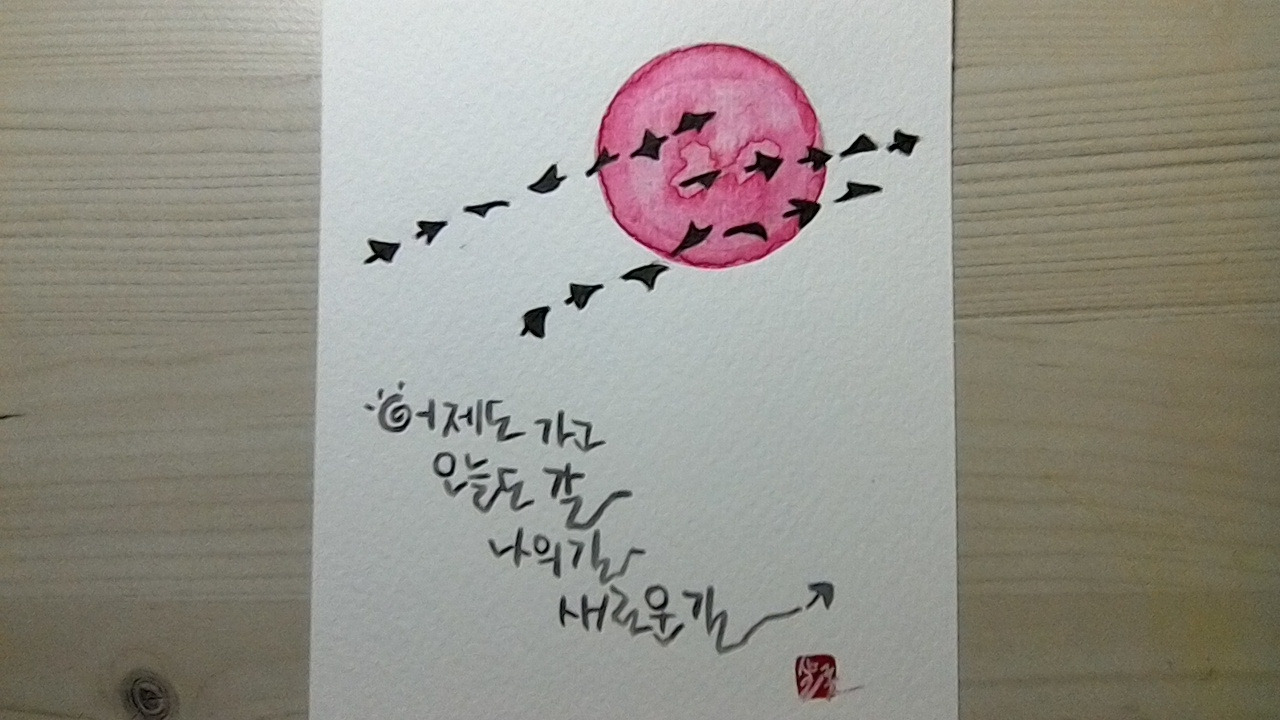 어제도 가고
오늘도 갈
나의 길
새로운 길